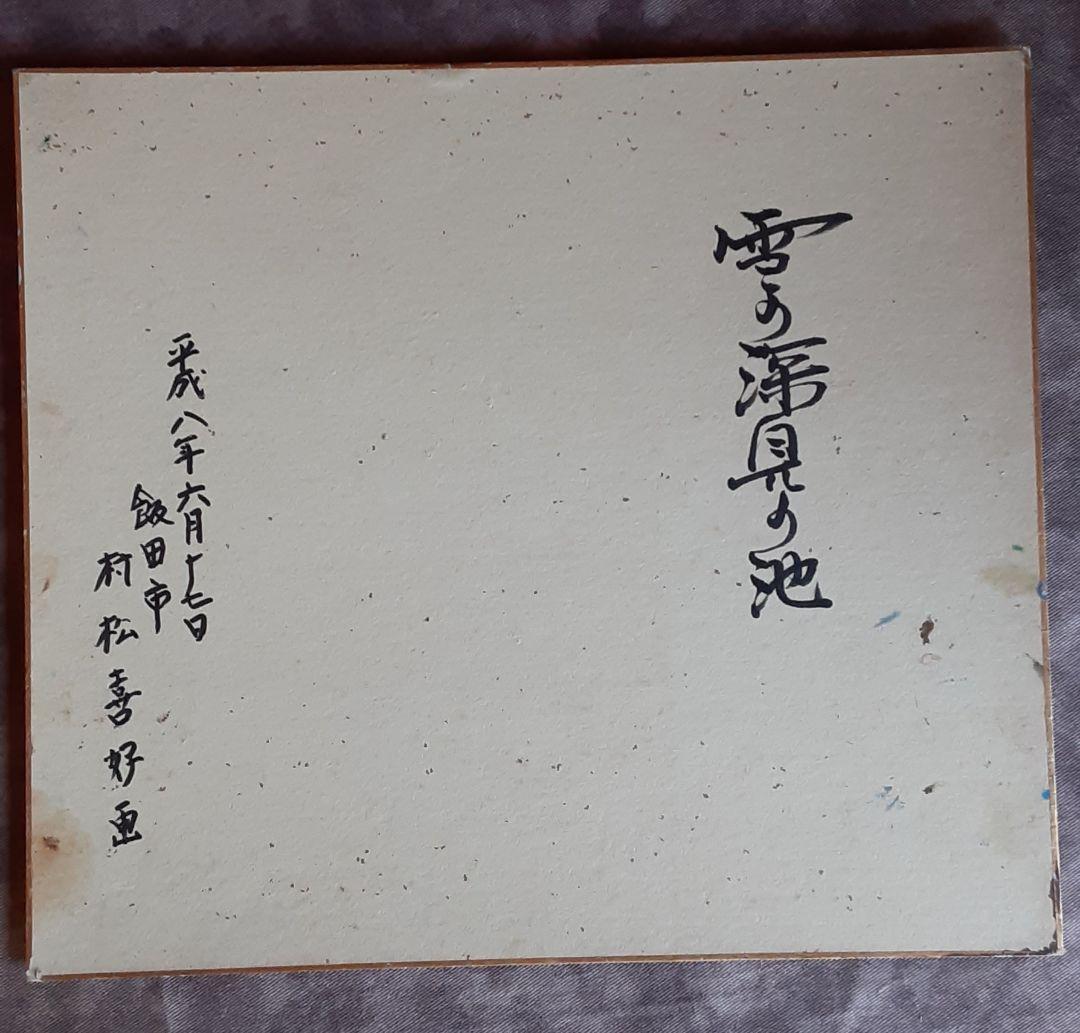 雪の深見の池
平成八年六月十七日
飯田市
村松喜好画